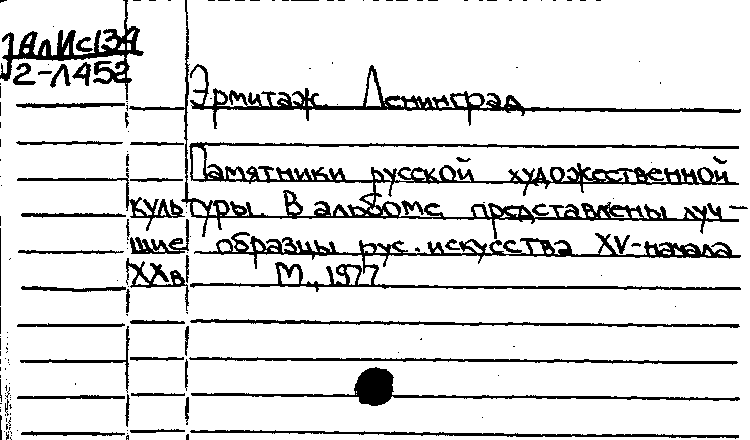 2-Л452
Эрмитаж. Ленинград
Памятники русской художественной
культуры. В альбоме представлены луч-
шие образцы рус. искусства XV-начала
XXв М., 1977.